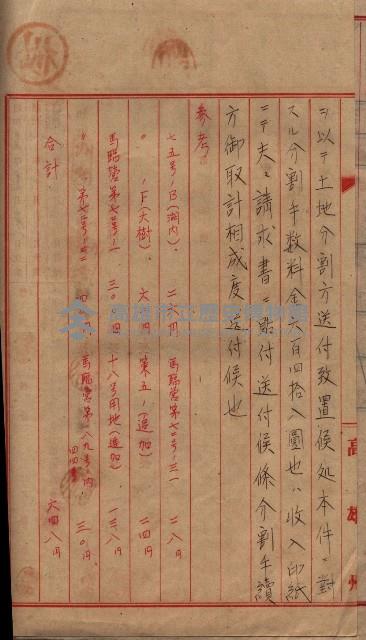 ヲ以テ土地分割方送付致置候処本件ニ對
スル分割手数料金六百四拾八圓也ハ收入印紙
ニテ夫々請求書ニ貼付送付候條分割手續
方御取計相成度送付候也
参考
七五号ノB（湖内）、 二 円 馬臨营第七二号ノ三一 二八
〃 ノF（大樹） 六 円 第五ノ一（追加） 二四
馬臨营第七二号ノ一 三〇 四 十八号用地（追加） 一三八
馬臨营第一八九号ノ内 三〇円
合計 六四八円
高雄州
高雄市立歷史博物館